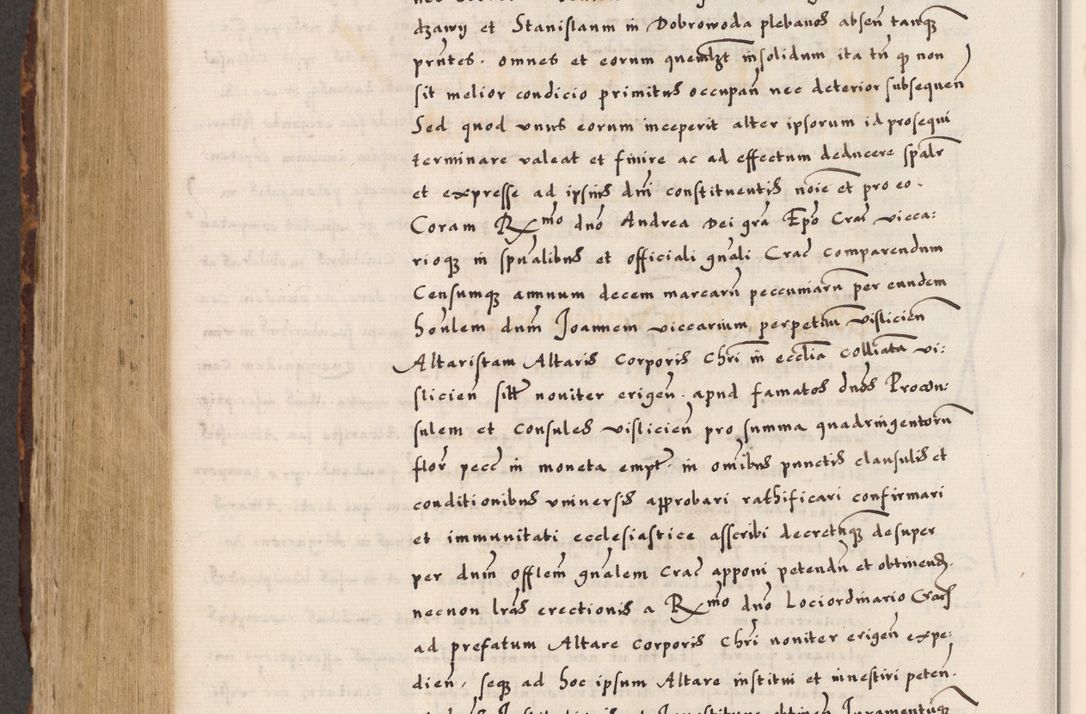 dzawy et Stanislaum in Dobrowoda plebanos absen̄ tanqȝ
pr̄ntes. omnes et eorum quemlȝt insolidum ita tn̄ qp non
sit melior condicio primitus occupan̄ nec deterior subsequen̄
Sed quod vnus eorum inceperit alter ipsorum id prosequi
terminare valeat et finire ac ad effectum deducere spālr
et expresse ad ipsius dn̄i constituentis noīe et pro eo.
Coram Rx̄mo dno Andrea Dei grā Epō Crac̄ vicca:
rioqȝ in spūalibus et officiali gn̄ali Crac̄ comparendum
Censumqȝ annuum decem marcarū peccuniarū per eundem
honl̄em dnm̄ Joannem viccarium perpetuū vislicien̄
Altaristam Altaris Corporis Chr̄i in ecclīa Colliāta vi:
slicien̄ silr̄ noviter erigen̄. apud famatos dn̄os Procon:
sulem et Consules vislicien̄ pro summa quadringentorū
flor̄ pecc̄ in moneta empt̄. in om̄ibus punctis clausulis et
conditionibus vniversis approbari rathificari confirmari
et immunitati ecclesiastice asscribi decretūqȝ desuper
per dnm̄ offlem̄ gn̄alem Crac̄ apponi petendū et obtinend̄.
necnon lr̄as erectionis a Rx̄mo dno Lociordinario Crac̄
ad prefatum Altare Corporis Chr̄i noviter erigen̄ expe:
dien̄. seqȝ ad hoc ipsum Altare institui et investiri peten̄.